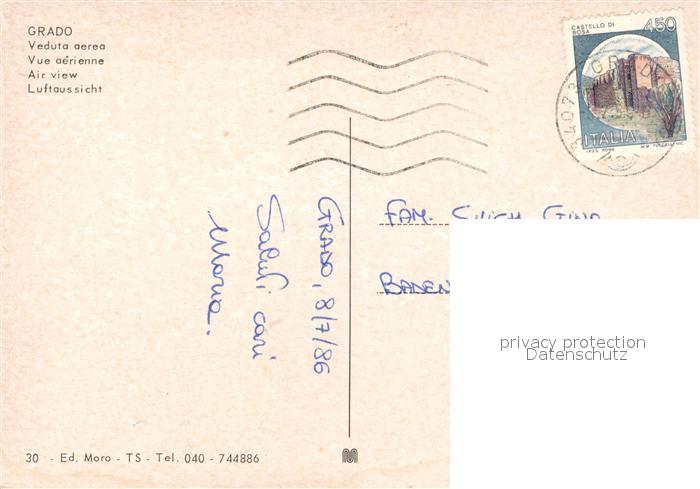 GRADO
Veduta aerea
Vue aérienne
Air view
Luftaussicht
CASTELLO DI
BOSA
450
34073 GRADO
ITALIA
I.P.Z.S. ROMA
GRADO, 8/7/86
Saluti cari
Maria.
FAM. GINO
BADEN
privacy protection
Datenschutz
30 - Ed. Moro - TS - Tel. 040 - 744886